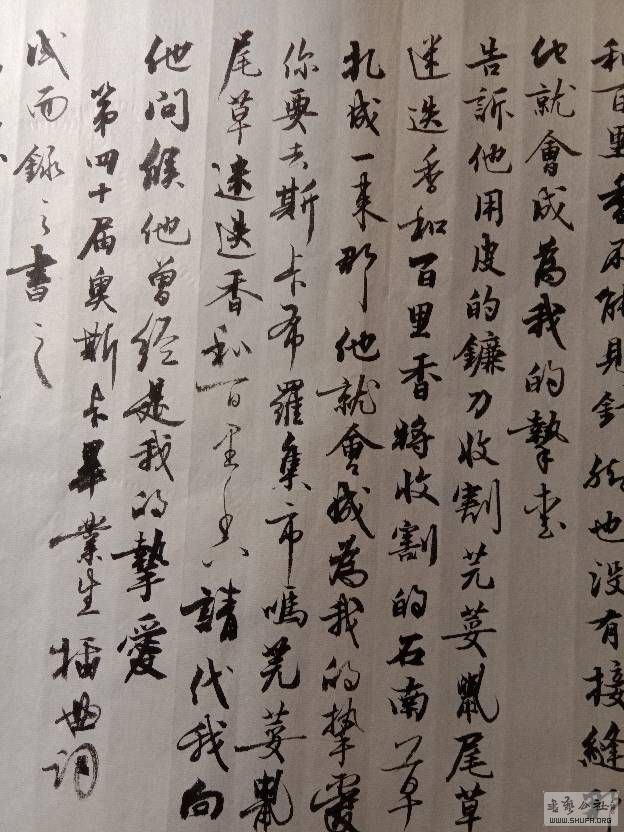 和百里香不能見針腳也没有接縫那
他就會成為我的摯愛
告訴他用皮的鐮刀收割芫荽鼠尾草
迷迭香和百里香將收割的石南草
扎成一束那他就會成為我的摯愛
你要去斯卡布羅集市嗎芫荽鼠
尾草迷迭香和百里香請代我向
他問候他曾經是我的摯愛
第四十届奥斯卡畢業生插曲詞
成而録之書之
求艺公社
WWW.SHUFA.ORG